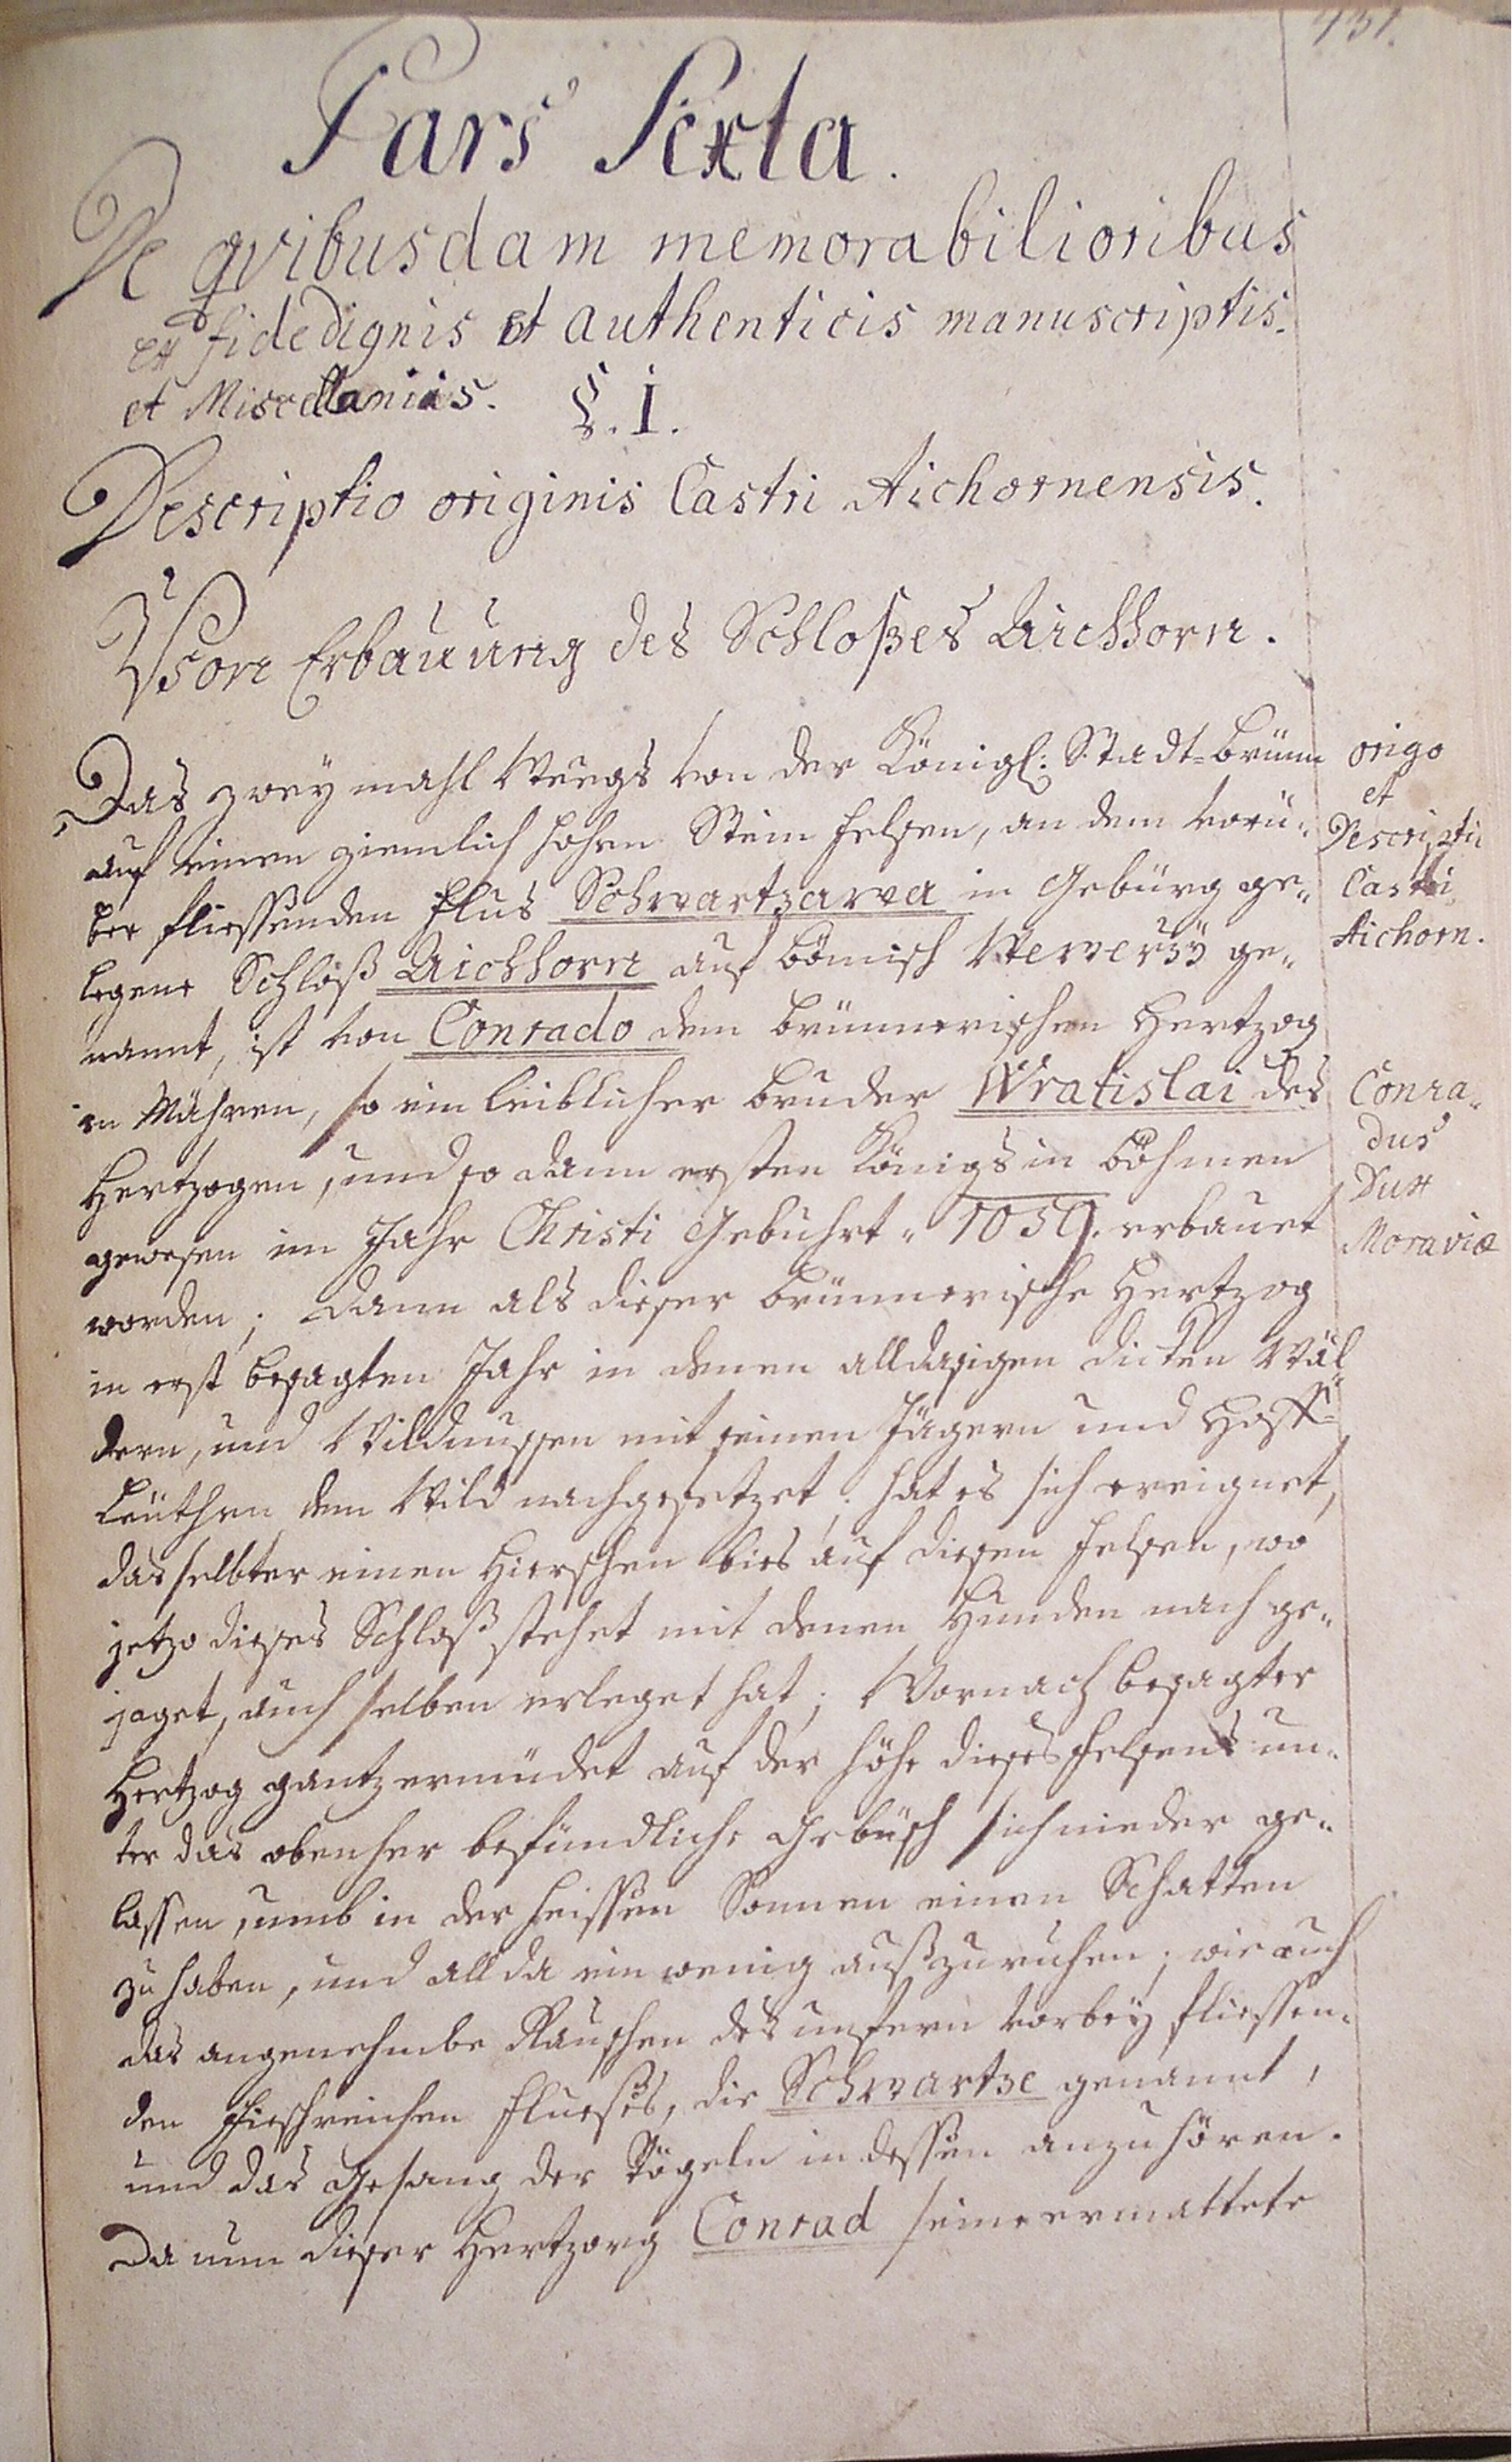 431.
Pars Sexta.
De qvibusdam memorabilioribus
ex fide dignis et authenticis manuscriptis.
et Miscellaniis. §. 1.
Descriptio originis Castri Aichornensis.
Von Erbauung des Schloßes Aichhorn.
Das zwey mahl Weegs von der Königl: Stadt-Brünn
auf einen ziemlich hohen Stein felsen, an dem vorü-
ber fliessenden flus Schwartzawa in Gebürg ge-
legene Schloß Aichhorn auf Bömisch Weverzÿ ge-
nannt, ist von Conrado dem brünnerischen Hertzog
in Mähren, so ein leiblicher Bruder Wratislai des
Hertzogen, und so dann ersten Königs in Böhmen
gewesen im Jahr Christi Gebuhrt 1059. erbauet
worden; Dann als dieser brünnerische Hertzog
in erst besagten Jahr in denen alldasigen dicten Wäl-
dern, und Wildnussen mit seinen Jägern und Hoff-
Leüthen dem Wild nachgesetzet; hat es sich ereignet,
das selbter einen Hierschen bies auf diesen felsen, wo
jetzo dieses Schloß stehet mit denen Hunden nach ge-
jaget, auch selben erleget hat; Wornach besagter
Hertzog gantz ermüdet auf der Höhe dieses felsens un-
ter das obenher befündliche Gebüsch sich nieder ge-
lassen, umb in der heissen Sonnen einen Schatten
zu haben, und allda ein wenig auszuruhen; wie auch
das angenehmbe Rauschen des unfern vorbeÿ fliessen-
den fischreichen fluesses, die Schwartze genannt,
und das Gesang der Vögeln indessen anzuhören.
Da nun dieser Hertzog Conrad seine ermattete
origo
et
Descriptio
Castri
Aichorn.
Conra-
dus
Dux
Moraviæ